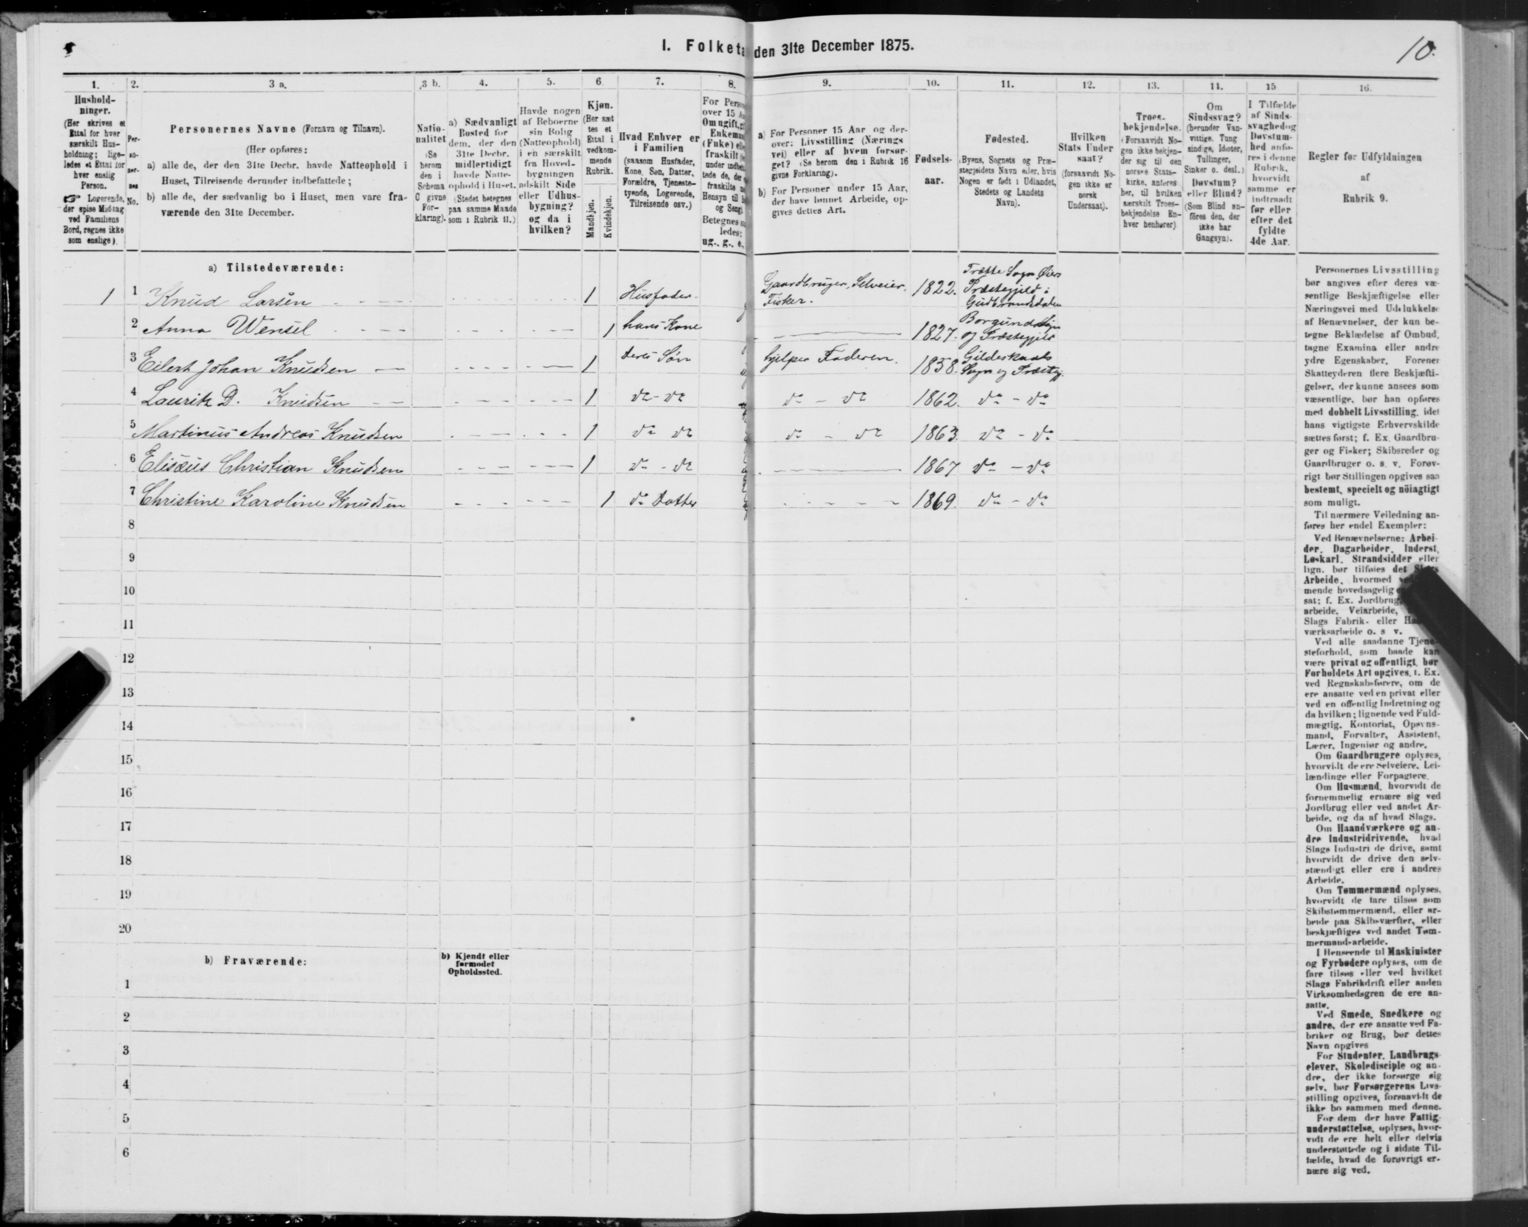 I. Folketæ
den 31te December 1875.
10.
1.
2.
3 a.
3 b.
4.
5.
6
7.
8.
9.
10.
11.
12.
13.
14.
15
16.
Hushold-
ninger.
(Her skrives et
Ettal for hver
særskilt Hus-
holdning; lige-
ledes et Ettal for
hver enslig
Person.
☞ Logerende,
der spise Middag
ved Familiens
Bord, regnes ikke
som enslige).
Per-
so-
ner-
nes
No.
Personernes Navne (Fornavn og Tilnavn).
(Her opføres:
a) alle de, der den 31te Decbr. havde Natteophold i
Huset, Tilreisende derunder indbefattede;
b) alle de, der sædvanlig bo i Huset, men vare fra-
værende den 31te December.
Natio-
nalitet
(Se
herom
den i
Schema
C givne
For-
klaring).
a) Sædvanligt
Bosted for
dem, der den
31te Decbr.
midlertidigt
havde Natte-
ophold i Huset.
(Stedet betegnes
paa samme Maade
som i Rubrik 11.)
Havde nogen
af Beboerne
sin Bolig
(Natteophold)
i en særskilt
fra Hoved-
bygningen
adskilt Side
eller Udhus-
bygning?
og da i
hvilken?
Kjøn.
(Her sæt
tes et
Ettal i
vedkom-
mende
Rubrik.
Mandkjøn.
Kvindekjøn.
Hvad Enhver er
i Familien
(saasom Husfader,
Kone, Søn, Datter,
Forældre, Tjeneste-
tyende, Logerende,
Tilreisende osv.)
For Perso
over 15 A
Om ugift,
Enkema
(Fuke) ell
fraskilt
under indbef
tede de, der
fraskilte
Hensyn til B
og Seng)
Betegnes
ledes:
ug., g., e.,
a) For Personer 15 Aar og der-
over: Livsstilling (Nærings
vei) eller af hvem forsør-
get? (Se herom den i Rubrik 16
givne Forklaring).
b) For Personer under 15 Aar,
der have lønnet Arbeide, op-
gives dettes Art.
Fødsels-
aar.
Fødested.
(Byens, Sognets og Præ-
stegjeldets Navn eller, hvis
Nogen er født i Udlandet,
Stedets og Landets
Navn).
Hvilken
Stats Under
saat?
(forsaavidt No-
gen ikke er
norsk
Undersaat).
Troes-
bekjendelse.
(Forsaavidt No-
gen ikke bekjen-
der sig til den
norske Stats-
kirke, anføres
her, til hvilken
særskilt Troes-
bekjendelse En-
hver henhører)
Om
Sindssvag?
(herunder Van-
vittige, Tung
sindige, Idioter,
Tullinger,
Sinker o. desl.)
Døvstum?
eller Blind?
(Som Blind an-
føres den, der
ikke har
Gangsyn).
I Tilfælde
af Sinds-
svaghed og
Døvstum-
hed anfø-
res i denne
Rubrik,
hvorvidt
samme er
indtraadt
før eller
efter det
fyldte
4de Aar.
Regler for Udfyldningen
af
Rubrik 9.
a) Tilstedeværende:
1 1 Knud Larsen 1 Husfader Gaardbruger, Selveier, Fisker. 1822. Frette Sogn Øiers Præstegjeld i Gudbrandsdalen
2 Anna Wensel 1 hans Kone 1827. Borgund Sogn og Præstegjeld
3 Eilert Johan Knudsen 1 deres Søn hjelper Faderen. 1858. Gildeskaals Sogn og Præstg.
4 Lauritz D. Knudsen 1 do - do do - do 1862. do - do
5 Martinus Andreas Knudsen 1 do do do - do 1863. do - do
6 Elisæus Christian Knudsen 1 do - do 1867 do - do
7 Christine Karoline Knudsen 1 do Datter 1869. do - do
8
9
10
11
12
13
14
15
16
17
18
19
20
b) Fraværende:
b) Kjendt eller
formodet
Opholdssted.
1
2
3
4
5
6
Personernes Livsstilling
bør angives efter deres væ-
sentlige Beskjæftigelse eller
Næringsvei med Udelukkelse
af Benævnelser, der kun be-
tegne Beklædelse af Ombud,
tagne Examina eller andre
ydre Egenskaber. Forener
Skatteyderen flere Beskjæfti-
gelser, der kunne ansees som
væsentlige, bør han opføres
med dobbelt Livsstilling, idet
hans vigtigste Erhvervskilde
sættes først; f. Ex. Gaardbru-
ger og Fisker; Skibsreder og
Gaardbruger o. s. v. Forøv-
rigt bør Stillingen opgives saa
bestemt, specielt og nøiagtigt
som muligt.
Til nærmere Veiledning an-
føres her endel Exempler:
Ved Benævnelserne: Arbei-
der, Dagarbeider, Inderst,
Løskarl, Strandsidder eller
lign. bør tilføies det Slags
Arbeide, hvormed
mende hovedsagelig
sat; f. Ex. Jordbrug
arbeide, Veiarbeide,
Slags Fabrik- eller Haand-
værksarbeide o. s v.
Ved alle saadanne Tjene-
steforhold, som baade kan
være privat og offentligt, bør
Forholdets Art opgives, f. Ex.
ved Regnskabsførere, om de
ere ansatte ved en privat eller
ved en offentlig Indretning og
da hvilken; lignende ved Fuld-
mægtig, Kontorist, Opsyns-
mand, Forvalter, Assistent,
Lærer, Ingeniør og andre.
Om Gaardbrugere oplyses,
hvorvidt de ere Selveiere, Lei-
lændinge eller Forpagtere.
Om Husmænd, hvorvidt de
fornemmelig ernære sig ved
Jordbrug eller ved andet Ar-
beide, og da af hvad Slags.
Om Haandværkere og an-
dre Industridrivende, hvad
Slags Industri de drive, samt
hvorvidt de drive den selv-
stændigt eller ere i andres
Arbeide.
Om Tømmermænd oplyses,
hvorvidt de fare tilsøs som
Skibstømmermænd, eller ar-
beide paa Skibsværfter, eller
beskjæftiges ved andet Tøm-
mermandsarbeide.
I Henseende til Maskinister
og Fyrbødere oplyses, om de
fare tilsøs eller ved hvilket
Slags Fabrikdrift eller anden
Virksomhedsgren de ere an-
satte.
Ved Smede, Snedkere og
andre, der ere ansatte ved Fa-
briker og Brug, bør dettes
Navn opgives
For Studenter, Landbrugs-
elever, Skoledisciple og an-
dre, der ikke forsørge sig
selv, bør Forsørgerens Livs-
stilling opgives, forsaavidt de
ikke bo sammen med denne.
For dem der have Fattig-
understøttelse, oplyses, hvor-
vidt de ere helt eller delvis
understøttede og i sidste Til-
fælde, hvad de forøvrigt er-
nære sig ved.